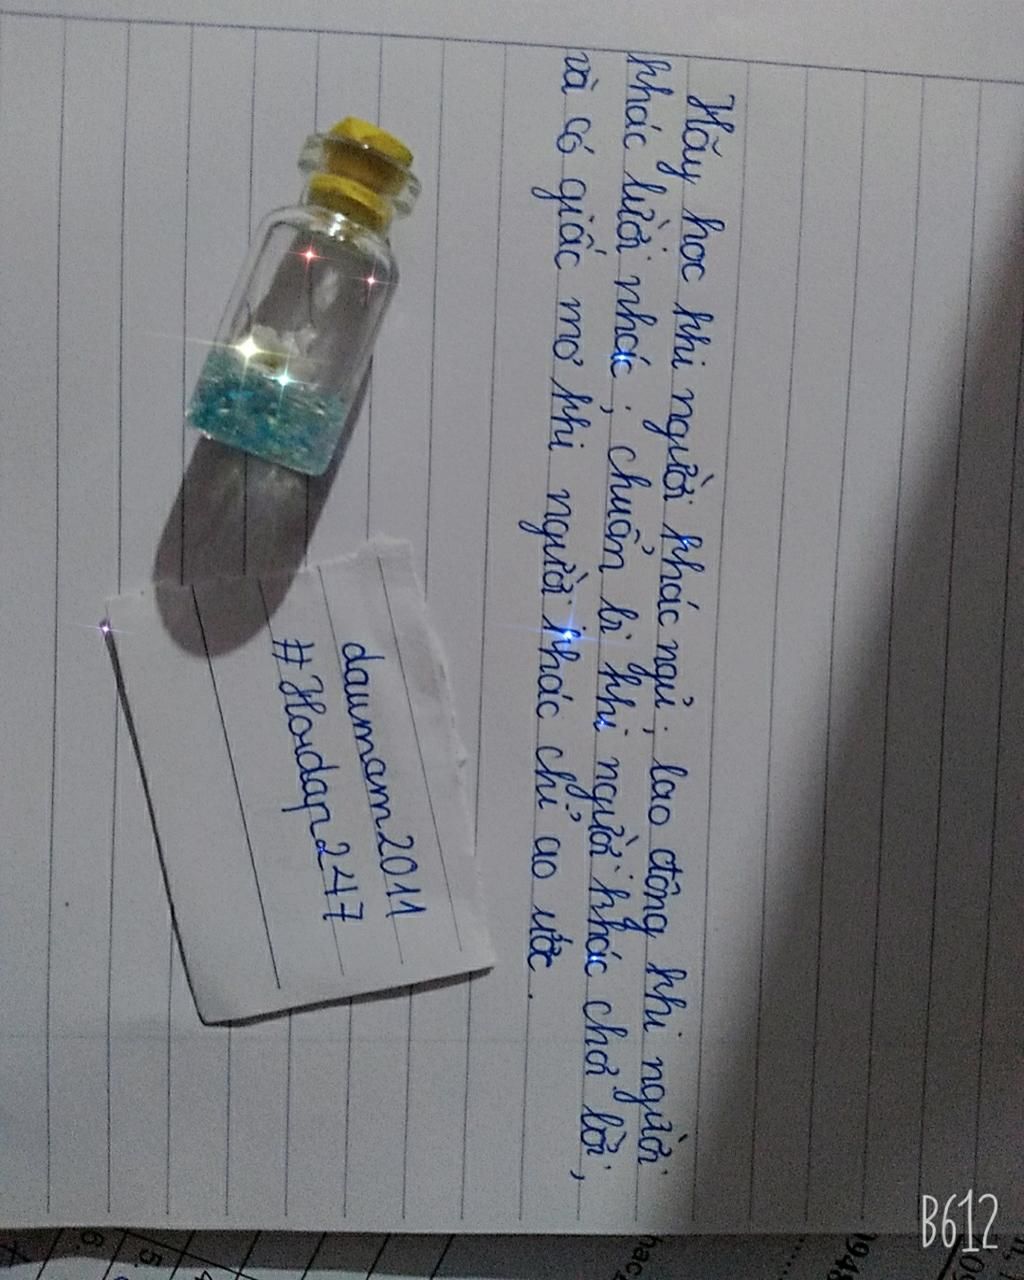 Hãy học khi người khác ngủ ; lao động khi người
khác lười nhác ; chuẩn bị khi người khác chơi bời ,
và có giấc mơ khi người khác chỉ ao ước .
daumam2011
#Hoidap247
B612
6.
5.